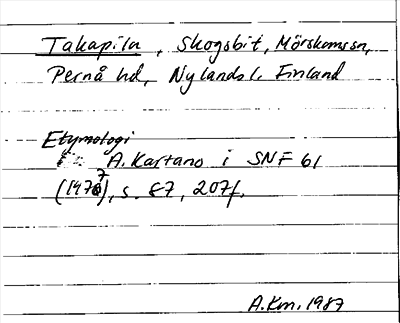 Takapila, Skogsbit, Mörskomssn,
Pernå hd, Nylandsl. Finland
Etymologi
A. Kartano i SNF 61
(1977), s. 87, 207f.
A.Km. 1987